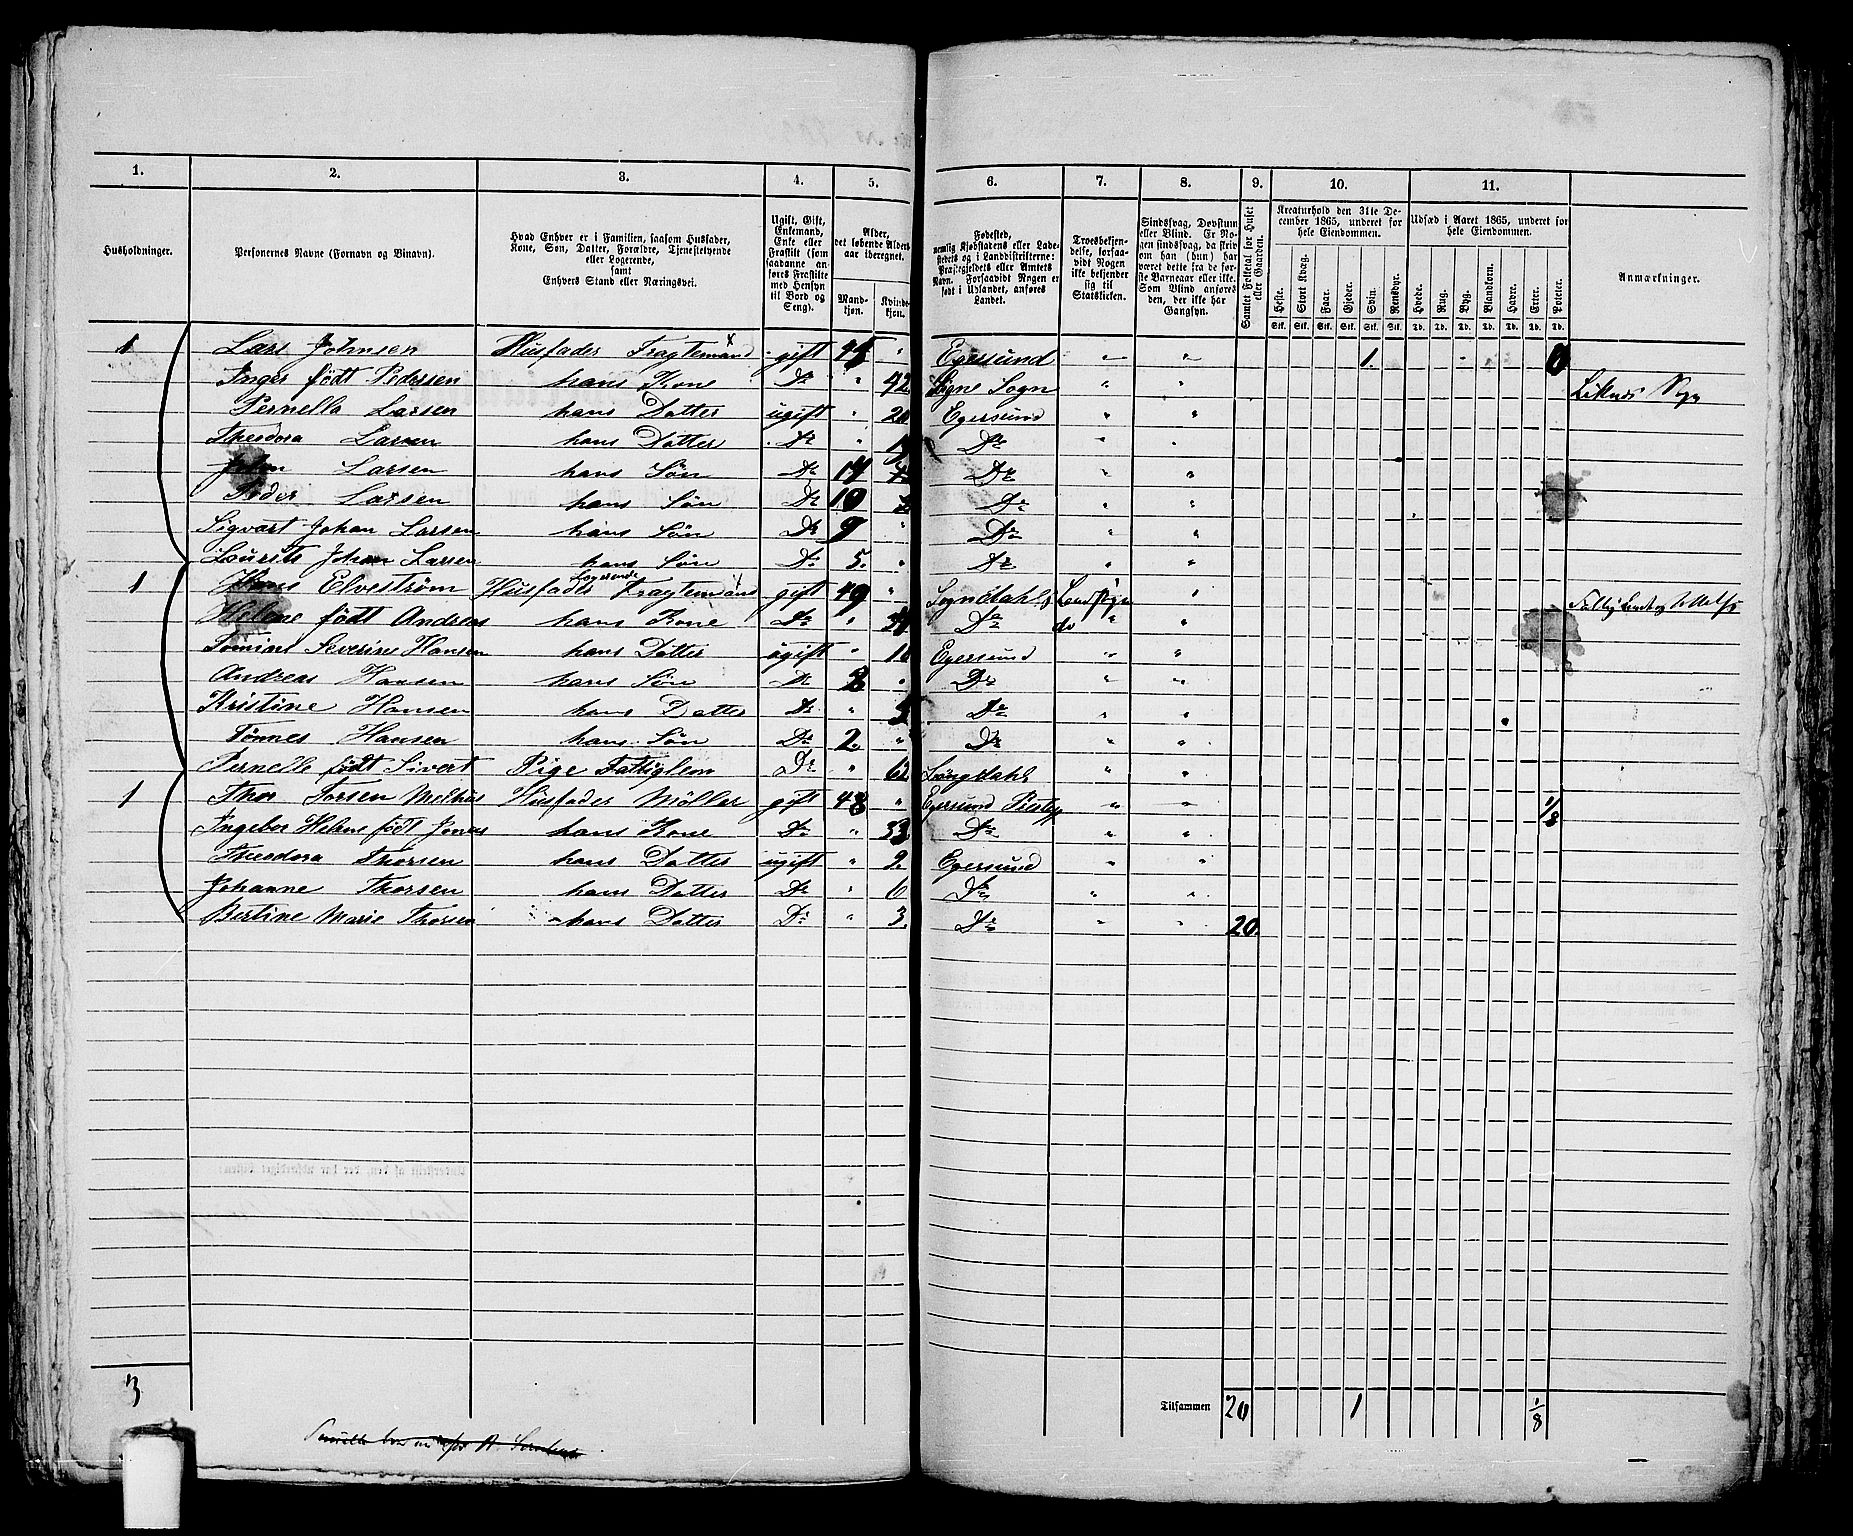 1. 2. 3. 4. 5. 6. 7. 8. 9. 10. 11.
Husholdninger.
Personernes Navne (Fornavn og Tilnavn).
Hvad Enhver er i Familien, saasom Husfader, Kone, Søn, Datter, Forældre, Tjenestetyende eller Logerende, samt Enhvers Stand eller Næringsvei.
Ugift, Gift, Enkemand, Enke eller Fraskilt (som saadanne anføres Fraskilte med Hensyn til Bord og Seng).
Alder, det løbende Alders-aar iberegnet.
Mand-kjøn. Kvinde-kjøn.
Fødested, nemlig Kjøbstadens eller Ladestedets og i Landdistrikterne: Præstegjeldets eller Amtets Navn. Forsaavidt Nogen er født i Udlandet, anføres Landet.
Troesbekjendelse, forsaavidt Nogen ikke bekjender sig til Statskirken.
Sindssvag, Døvstum eller Blind. Er Nogen sindssvag, da skrives om han (hun) har været dette fra de første Barneaar eller ikke. Som Blind anføres den, der ikke har Gangsyn.
Samlet Folketal for Huset eller Gaarden.
Kreaturhold den 31te December 1865, underet for hele Eiendommen.
Heste. Stort Kvæg. Faar. Gjeder. Svin. Rensdyr.
Stk. Stk. Stk. Stk. Stk. Stk.
Udsæd i Aaret 1865, underet for hele Eiendommen.
Hvede. Rug. Byg. Blandkorn. Havre. Erter. Poteter.
Td. Td. Td. Td. Td. Td. Td.
Anmærkninger.
1 Lars Johnsen Husfader Fragtemand x gift " Egersund " " 1. 0
Inger født Pedersen hans Kone Do " 42 Sogn " "
Pernella Larsen hans Datter ugift " 20 Egersund " "
Theodora Larsen hans Datter Do " Do " "
John Larsen hans Søn Do 17 Do " "
Peder Larsen hans Søn Do 10 Do " "
Sigvart Johan Larsen hans Søn Do 9 " Do " "
Lourits Johan Larsen hans Søn Do 5. " Do " "
Logerende
1 Hans Elvestrøm Husfader Fragtemand x gift 49 " Sogndahls Landsogn "
Helene født Andreas hans Kone Do " Do do " "
Severine Hansen hans Datter ugift " Egersund " "
Andreas Hansen hans Søn Do " Do " "
Kristine Hansen hans Datter Do " Do " "
Tønnes Hansen hans Søn Do 2. " Do " "
Pernelle født Sivert Pige Fattiglem Do " 62 " "
1 Thor Torsen Melhus Husfader Møller gift 48 " Egersund " " 1/8
Ingebor Helene født Jonas hans Kone Do " 33 Do " "
Theodora Thorsen hans Datter ugift " 9. Egersund " "
Johanne Thorsen hans Datter Do " 6 Do " "
Bertine Marie Thorsen hans Datter Do " 3. Do " " 20.
3 Tilsammen 20 1 1/8